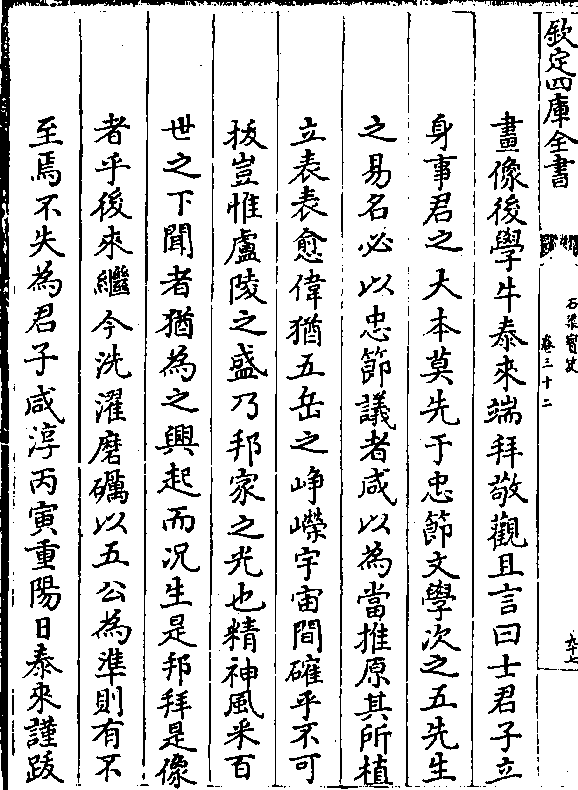 欽定四庫全書
石渠寶笈
卷三十二
畫像後學牛泰來端拜敬觀且言曰士君子立
身事君之大本莫先于忠節文學次之五先生
之易名必以忠節議者咸以為當推原其所植
立表表愈偉猶五岳之崢嶸宇宙間確乎不可
拔豈惟盧陵之盛乃邦家之光也精神風采百
世之下聞者猶為之興起而况生是邦拜是像
者乎後來繼今洗濯磨礪以五公為準則有不
至焉不失為君子咸淳丙寅重陽日泰來謹跋